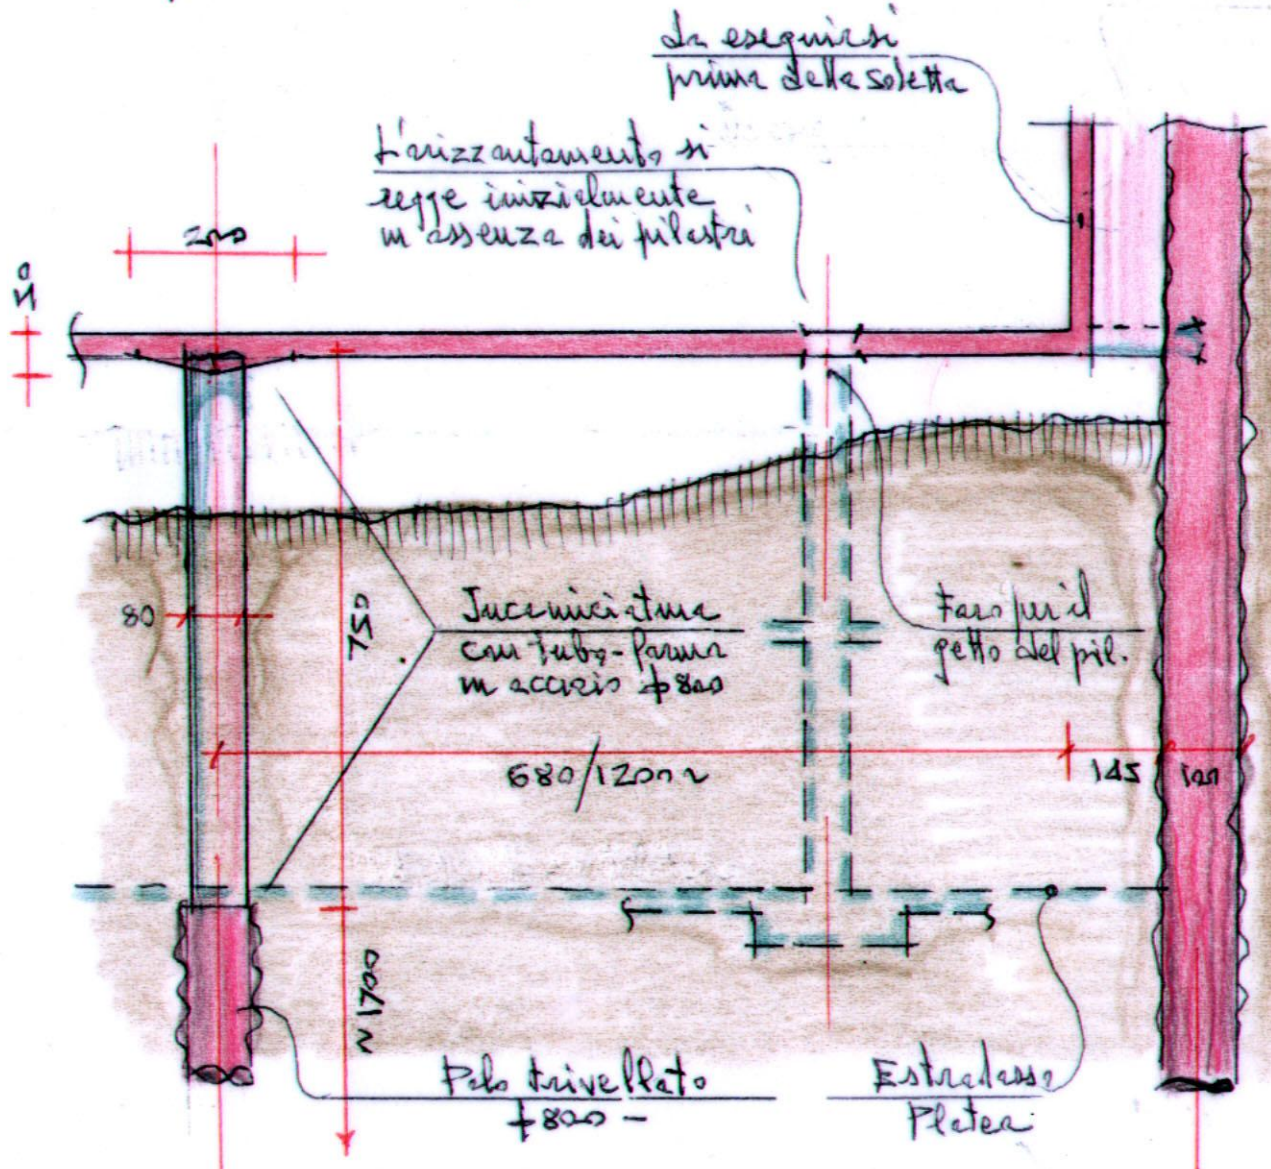 da eseguirsi
prima della soletta
L'orizzontamento si
regge inizialmente
in assenza dei pilastri
200
50
80
750
Incamiciatura
con tubo-forma
in acciaio ϕ800
Foro per il
getto del pil.
680/1200 ~
145
120
~ 1700
Palo trivellato
ϕ800 -
Estradosso
Platea